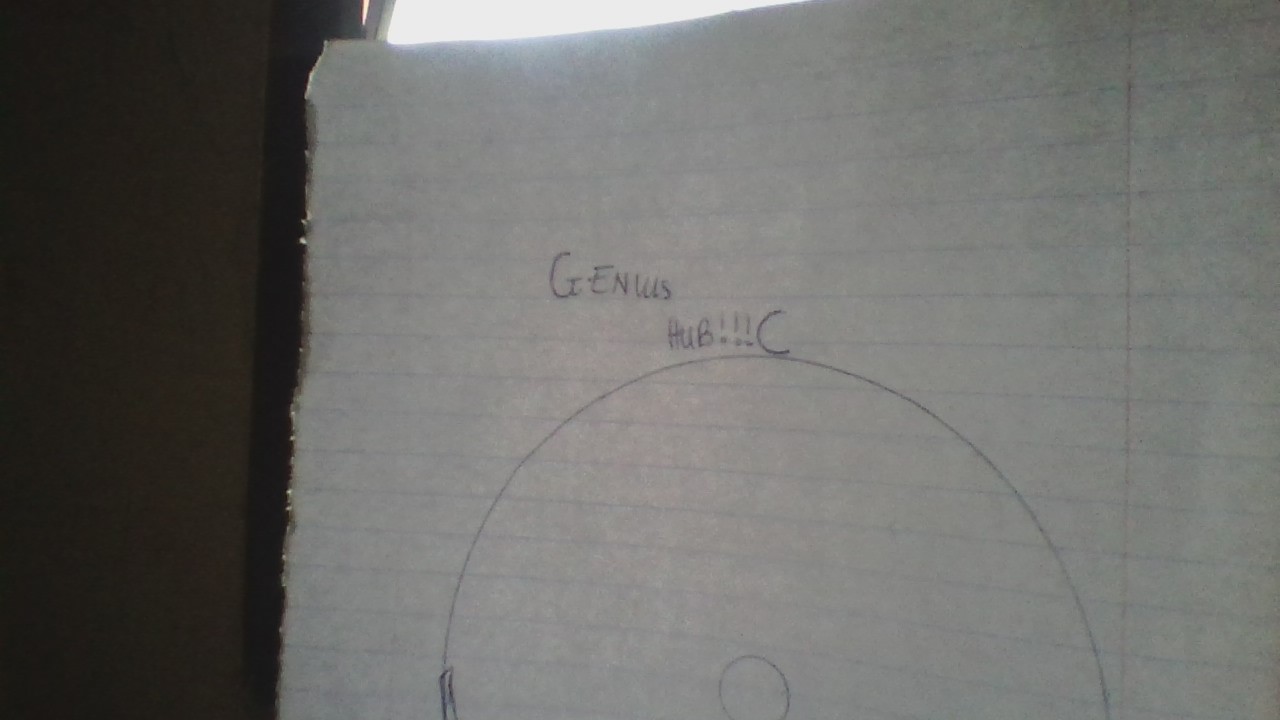 GENIUS
HUB!!!C